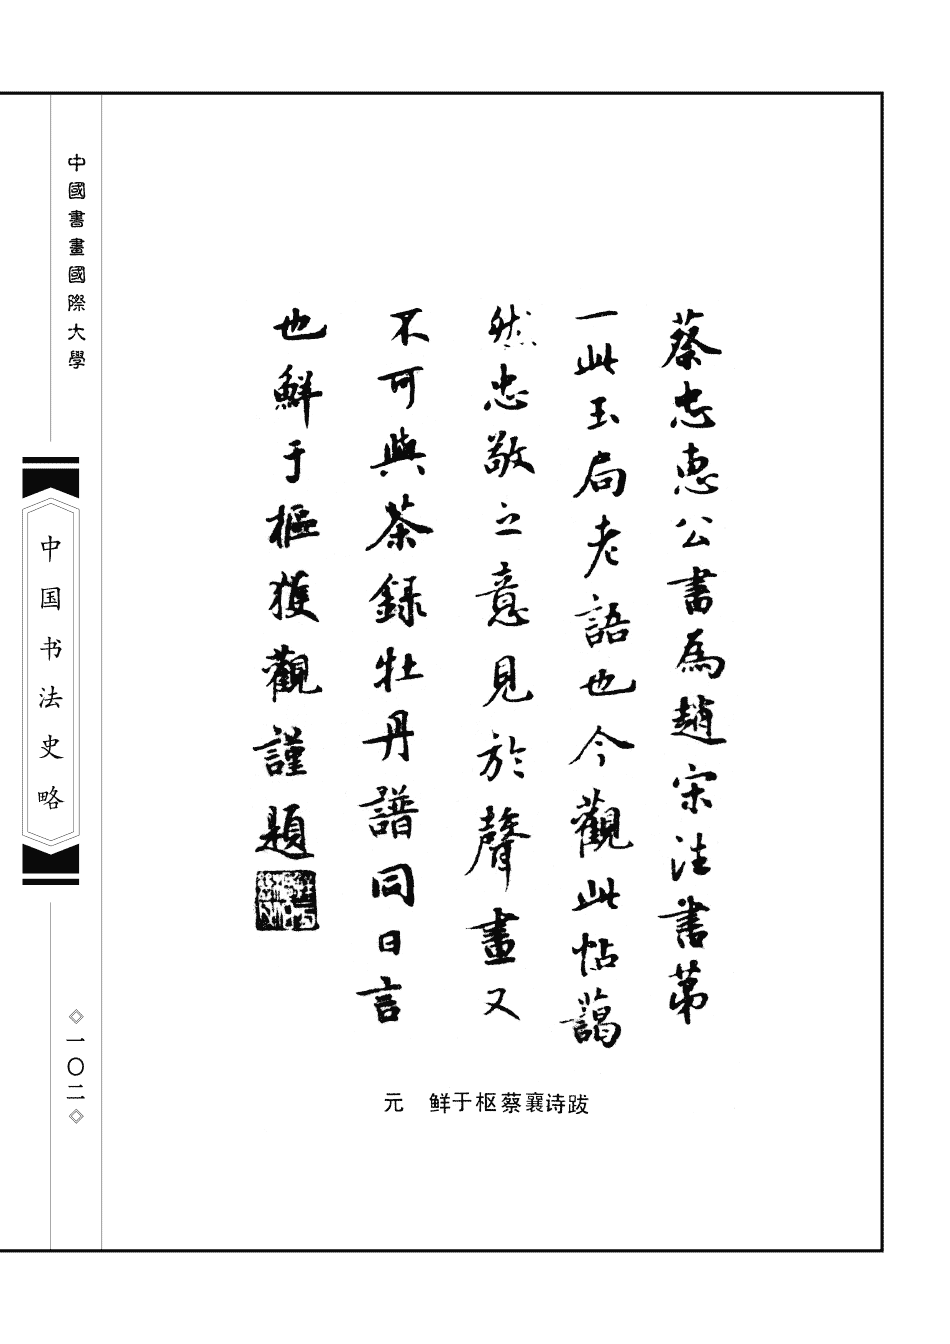 蔡忠惠公書為趙宋法書第
一此玉局老語也今觀此帖藹
然忠敬之意見於聲畫又
不可與茶録牡丹譜同日言
也鮮于樞獲觀謹題
元 鲜于枢蔡襄诗跋
中國書畫國際大學
中国书法史略
一〇二